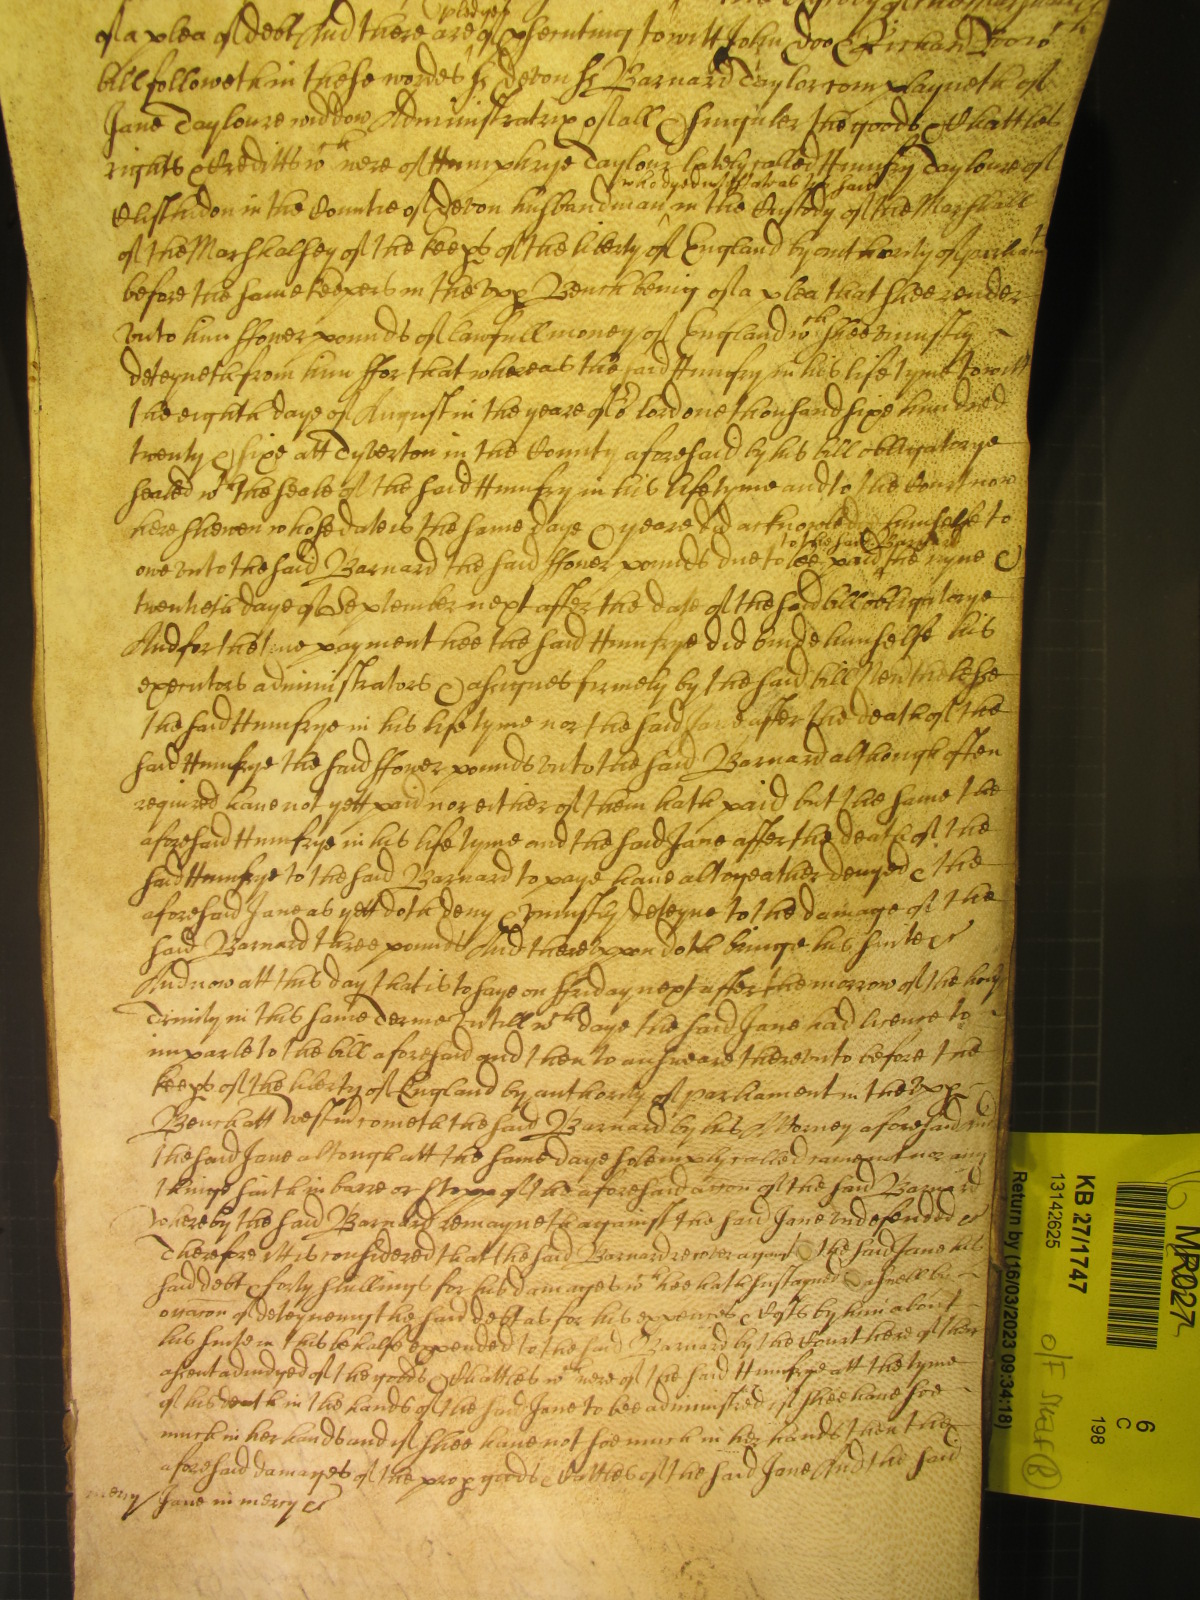 pledges
of a plea of debt And there are of prosecuting to witt John Doo & Richard Roo
bill followeth in these wordes ss devon ss Barnard Taylor complayneth of
Jane Tayloure widdow Administratrix of all & singuler the goods & Chattles
rights & Creditts wch were of Humphrye Taylour lately called Humfry Tayloure of
who dyed intestate as is said
in the Countie of Devon husbandman in the Custody of the Marshall
of the Marshalsey of the keeps of the liberty of England by authority of parliamt
before the same keepers in the upp Bench being of a plea that shee render
unto him ffower pounds of lawfull money of England wch shee uniustly
deteyneth from him ffor that whereas the said Humfry in his life tyme to witt
the eighth daye of August in the yeare of or lord one thousand sixe hundred
twenty & sixe att Tyverton in the County aforesaid by his bill obligatorye
sealed wth the seale of the said Humfry in his life tyme and to the Court now
here shewen whose date is the same daye & yeare did acknowledg himselfe to
to the said Barnard
owe unto the said Barnard the said ffower pounds due to be paid the nyne &
twentieth daye of September next after the date of the said bill obligatorye
And for the true payment hee the said Humfrye did binde himselfe his
executors administrators & assignes firmely by the said bill Neverthelesse
the said Humfrye in his life tyme nor the said Jane after the death of the
said Humfrye the said ffower pounds unto the said Barnard although often
required have not yett paid nor either of them hath paid but the same the
aforesaid Humfrye in his life tyme and the said Jane after the death of the
said Humfrye to the said Barnard to paye have altogeather denyed & the
aforesaid Jane as yett doth deny & uniustly deteyne to the damage of the
said Barnard three pounds And thereuppon doth bringe his suite &c
And now att this day that is to saye on ffriday next after the morrow of the holy
Trinity in this same Terme Untill wch daye the said Jane had licence to
imparle to the bill aforesaid and then to answeare thereunto before the
keeps of the liberty of England by authority of parliament in the upp
Bench att Westm cometh the said Barnard by his Attorney aforesaid And
the said Jane although att the same daye solemply called came not nor any
thinge saith in barre or stopp of the aforesaid accon of the said Barnard
Whereby the said Barnard remayneth against the said Jane undefended &c
Therefore itt is considered that the said Barnard recover against the said Jane his
said debt & forty shillings for his damages wch hee hath sustayned aswell by
occacon of deteyneing the said debt as for his expences & Costs by him about
his suite in this behalfe expended to the said Barnard by the Court here of their
assent adiudged of the goods & Chattles wch were of the said Humfrye att the tyme
of his death in the hands of the said Jane to bee administred if shee have soe
much in her hands and if shee have not soe much in her hands then the
aforesaid damages of the prop goods & Cattles of the said Jane And the said
mercy Jane in mercy &c
MR027
6
C
198
KB 27/1747
13142625
Return by (16/03/2023 09:34:18)